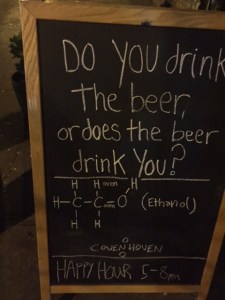 DO YOU drink
The beer,
or does the beer
drink You?
H H H
H-C-C-O (Ethanol)
H H
COVENHOVEN
HAPPY HOUR 5-8pm